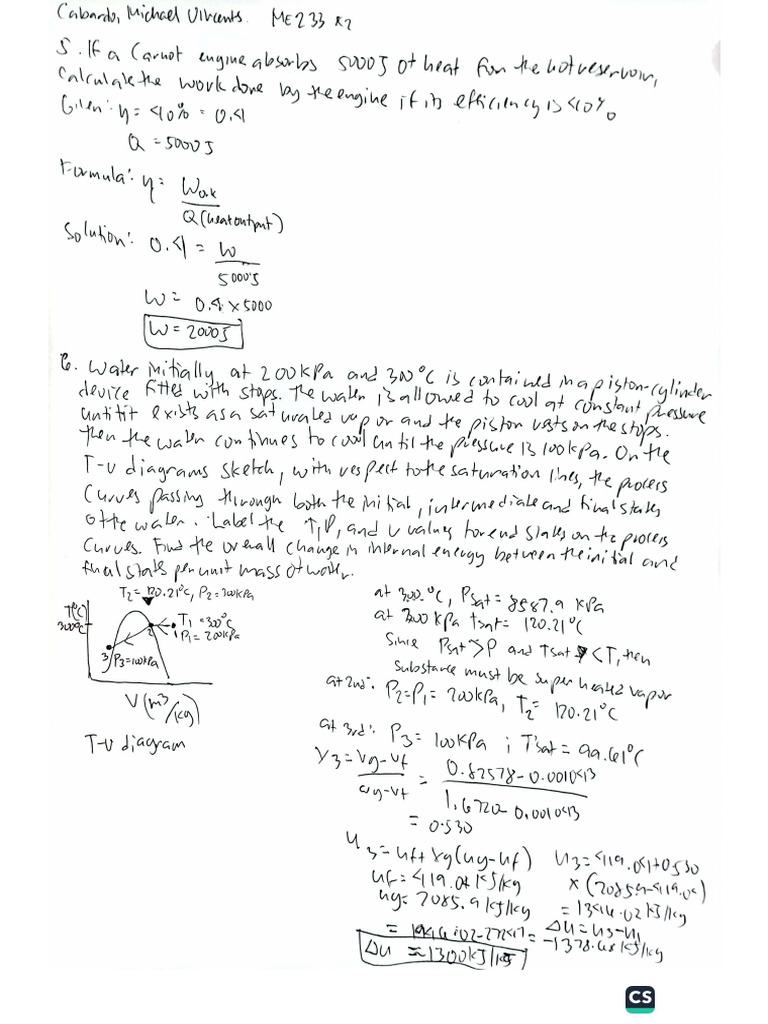 Cabardo, Michael Vincents. ME233 R2
5. If a Carnot engine absorbs 5000J of heat from the hot reservoir,
calculate the work done by the engine if its efficiency is 40%.
Given: η = 40% = 0.4
Q = 5000J
Formula: η = Work
Q (heat output)
Solution: 0.4 = W
5000J
W = 0.4 x 5000
W = 2000J
6. Water initially at 200kPa and 300°C is contained in a piston-cylinder
device fitted with stops. The water is allowed to cool at constant pressure
until it exists as a saturated vapor and the piston rests on the stops.
then the water continues to cool until the pressure is 100kPa. On the
T-v diagrams sketch, with respect to the saturation lines, the process
curves passing through both the initial, intermediate and final states
of the water. Label the T, P, and v values for end states on the process
curves. Find the overall change in internal energy between the initial and
final states per unit mass of water.
T2 = 120.21°C, P2 = 200kPa
T(°C)
300°C
2
1
T1 = 300°C
P1 = 200kPa
3
P3 = 100kPa
V (m3/kg)
T-v diagram
at 300°C, Psat = 8587.9 kPa
at 200 kPa tsat = 120.21°C
Since Psat > P and Tsat < T, then
Substance must be super heated vapor
at 2nd: P2 = P1 = 200kPa, T2 = 120.21°C
at 3rd: P3 = 100kPa ; Tsat = 99.61°C
= 0.530
uf = 419.04 kJ/kg
ΔU = U3 - U1
ΔU ≈ 1300 kJ/kg
CS